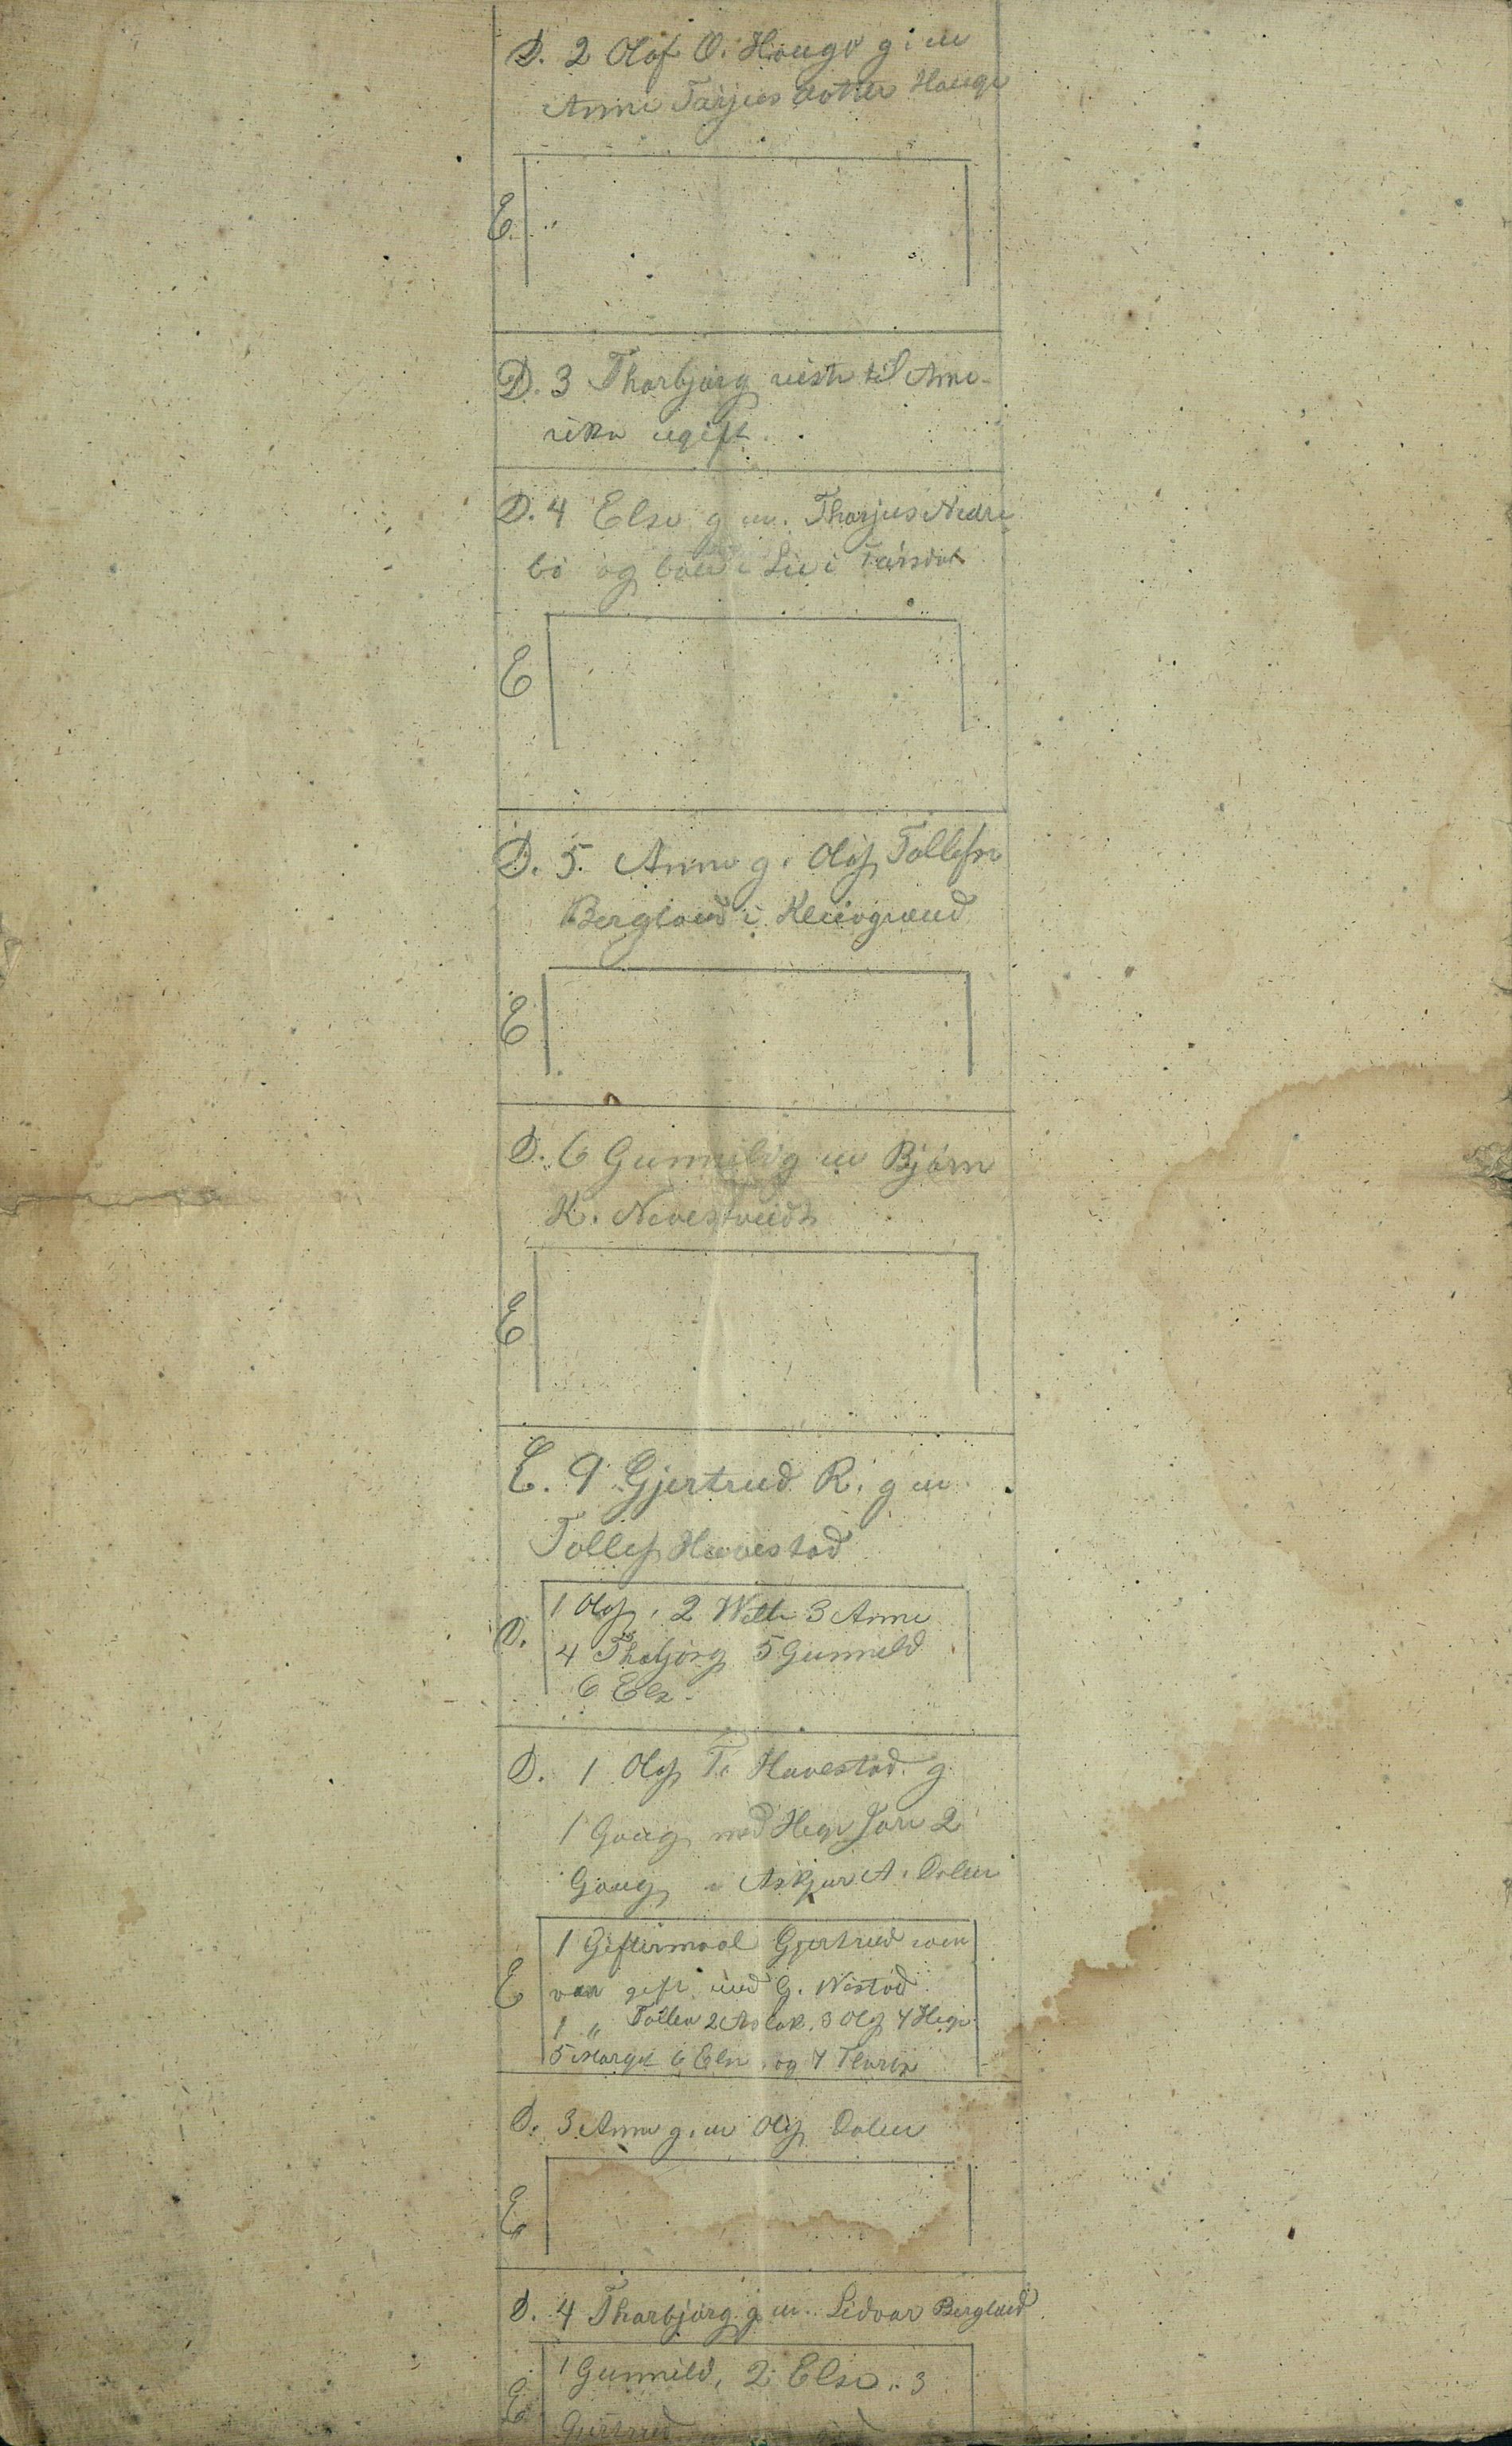 D. 2 Olof O. Hauge g. m
Anne Tarjus dotter Hauge
E
D. 3 Thorbjørg reiste til Ame-
rika ugift.
D. 4 Else g m. Tharjus Nedre
bø og boede i Lie i
E
D. 5. Anne g. Olof Tollefsn
Bergland i Kleivgrend
E
D. 6 Gunnild g m Bjørn
K. Nevestveidt
E
E. 9 Gjertrud R. g m
Tollef Havestad
D.
1 Olof, 2 3 Anne
4 Thobjørg 5 Gunnild
6 Else.
D. 1 Olof T. Havestad g.
1 Gang med Hege 2
Gang " Askjer A. Dalen
E
1 Giftermaal Gjertrud som
var gift med G.
1 " 2 Aslak. 3 Olof 4 Hege
5 Margit 6 Else. og 7
D. 3 Anne g. m Olof Dalen
E
D. 4 Thorbjørg g m. Lidvar Bergland
E
1 Gunnild, 2 Else. 3
Gjertrud